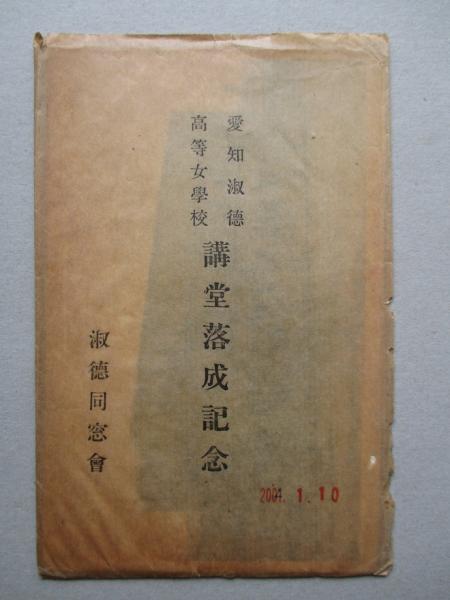 愛知淑德
高等女學校
講堂落成記念
淑德同窓會
2001. 1. 10